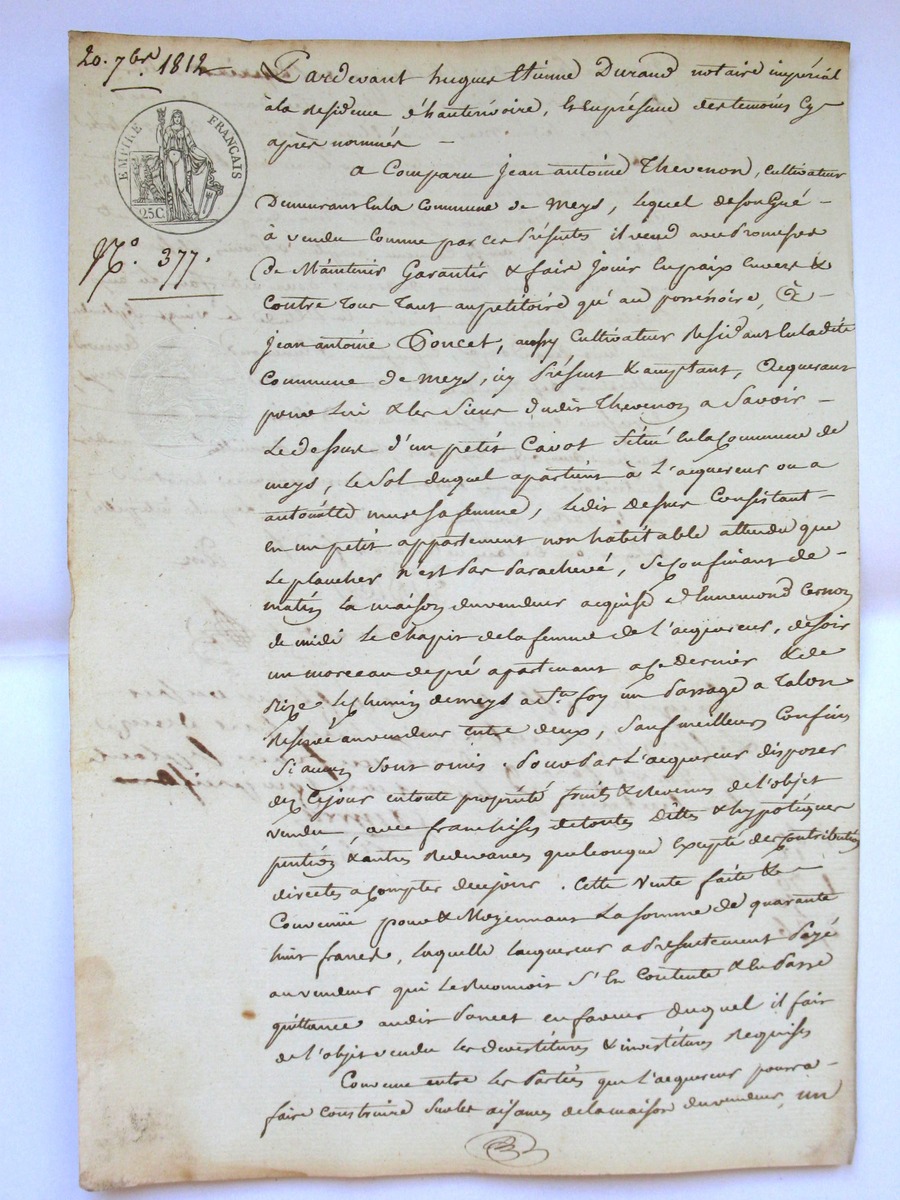 20. 7bre 1812
EMPIRE FRANÇAIS
25C.
N.o 377.
Pardevant hugues Etienne Durand notaire impérial
à la Residence d'hauterivoire, & en présence des temoins Cy-
après nommés —
a Comparu Jean antoine Thevenon, Cultivateur
Demeurant en la Commune de Meys, lequel de son Gré -
à vendu Comme par ces présentes il vend avec Promesse
De Maintenir Garantir & faire Jouir en paix Envers &
Contre Tous Tant au petitoire qu'au possessoire, à -
Jean antoine Poncet, aussy Cultivateur Residant en la dite
Commune de meys, icy Présent & acceptant, acquereur
pour Lui & les Siens dudit Thevenon a Savoir -
Le dessus d'un petit Cavot Situé en la Commune de
meys, Le Sol duquel apartient à L'acquereur ou a
antoinette mure sa femme, Ledit dessus Consistant -
en un petit appartement non habitable attendu que
Le plancher n'est Pas Parachevé, Se Confinant de -
matin La maison du vendeur acquise d'Ennemond
de midi Le Chapit de la femme de L'acquereur, de soir
un morceau de pré apartenant a ce dernier & de
Bize Le Chemin de meys a Ste foy un Passage a Talon
Reservé au vendeur entre deux, Sauf meilleurs Confins
Si aucuns Sont omis. Pour Par L'acquereur disposer
des Ce jour en toute propriété fruits & Revenus de L'objet
vendu, avec franchises de toutes dettes & hypotéques
pention & autres Redevances quelconque Excepté des Contributions
directes a Compter de ce jour. Cette Vente faite & -
Convenüe pour & Moyennant La somme de quarante
huit francs, Laquelle L'acquereur a Présentement Payé
au vendeur qui Le Reconnoit S'en Contente & en Passe
quittance audit Poncet en faveur duquel il fait
de L'objet vendu Les devestitures & investitures Requises
Convenu entre Les Parties que L'acquereur pourra -
faire Construire Sur les aisances de la maison du vendeur, un